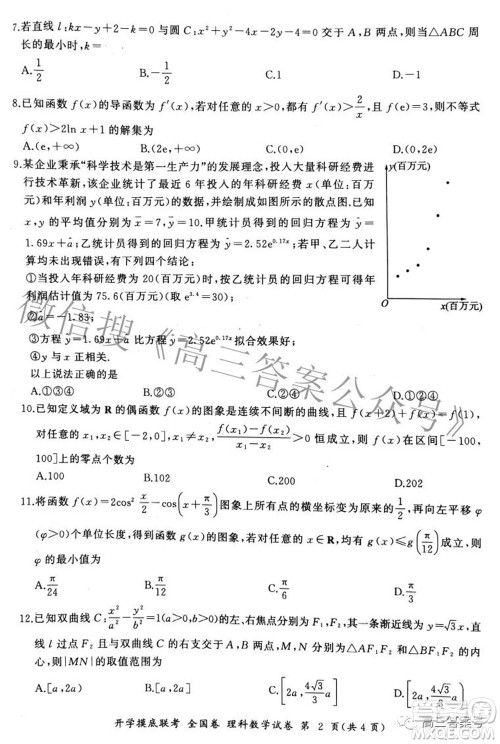 7.若直线 l:kx-y+2-k=0 与圆 C:x²+y²-4x-2y-4=0 交于 A,B 两点,则当△ABC 周
长的最小时,k=
A.1/2 B.-1/2 C.1 D.-1
8.已知函数 f(x)的导函数为 f′(x),若对任意的 x>0,都有 f′(x)>2/x,且 f(e)=3,则不等式
f(x)>2ln x+1 的解集为
A.(e,+∞) B.(1,+∞) C.(0,e) D.(0,1)
9.某企业秉承“科学技术是第一生产力”的发展理念,投入大量科研经费进
行技术革新,该企业统计了最近 6 年投入的年科研经费 x(单位:百万
元)和年利润 y(单位:百万元)的数据,并绘制成如图所示的散点图.已
知 x,y 的平均值分别为 x̄=7,ȳ=10.甲统计员得到的回归方程为 ŷ=
1.69x+â;乙统计员得到的回归方程为 ŷ=2.52e^0.17x;若甲、乙二人计
算均未出现错误,有以下结论:
①当投入年科研经费为 20(百万元)时,按乙统计员的回归方程可得年
利润估计值为 75.6(百万元)(取 e^3.4=30);
②â=-1.83;
③方程 ŷ=1.69x+â 比方程 ŷ=2.52e^0.17x 拟合效果好;
④y 与 x 正相关.
以上说法正确的是
A.①③④ B.②③ C.②④ D.①②④
y(百万元)
O x(百万元)
10.已知定义域为 R 的偶函数 f(x)的图象是连续不间断的曲线,且 f(x+2)+f(x)=f(1),
对任意的 x₁,x₂∈[-2,0],x₁≠x₂,(f(x₁)-f(x₂))/(x₁-x₂)>0 恒成立,则 f(x)在区间[-100,
100]上的零点个数为
A.100 B.102 C.200 D.202
11.将函数 f(x)=2cos²x/2-cos(x+π/3)图象上所有点的横坐标变为原来的1/2,再向左平移 φ
(φ>0)个单位长度,得到函数 g(x)的图象,若对任意的 x∈R,均有 g(x)≤g(π/12)成立,则
φ 的最小值为
A.π/24 B.π/12 C.π/6 D.π/4
12.已知双曲线 C:x²/a²-y²/b²=1(a>0,b>0)的左、右焦点分别为 F₁,F₂,其一条渐近线为 y=√3x,直
线 l 过点 F₂ 且与双曲线 C 的右支交于 A,B 两点,M,N 分别为△AF₁F₂ 和△BF₁F₂ 的内
心,则|MN|的取值范围为
A.[2a,+∞) B.[2a,4√3/3a) C.[2a,4√3/3a] D.(2a,4√3/3a)
开学摸底联考 全国卷 理科数学试卷 第 2 页(共 4 页)
微信搜《高三答案公众号》
高三答案号